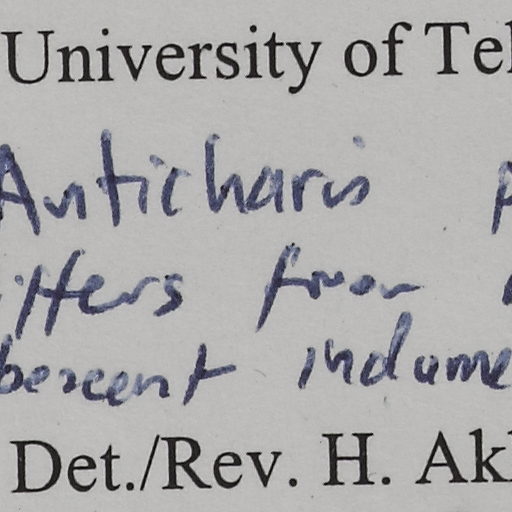 University of Teh
Anticharis p
iffers from
bescent indume
Det./Rev. H. Akh